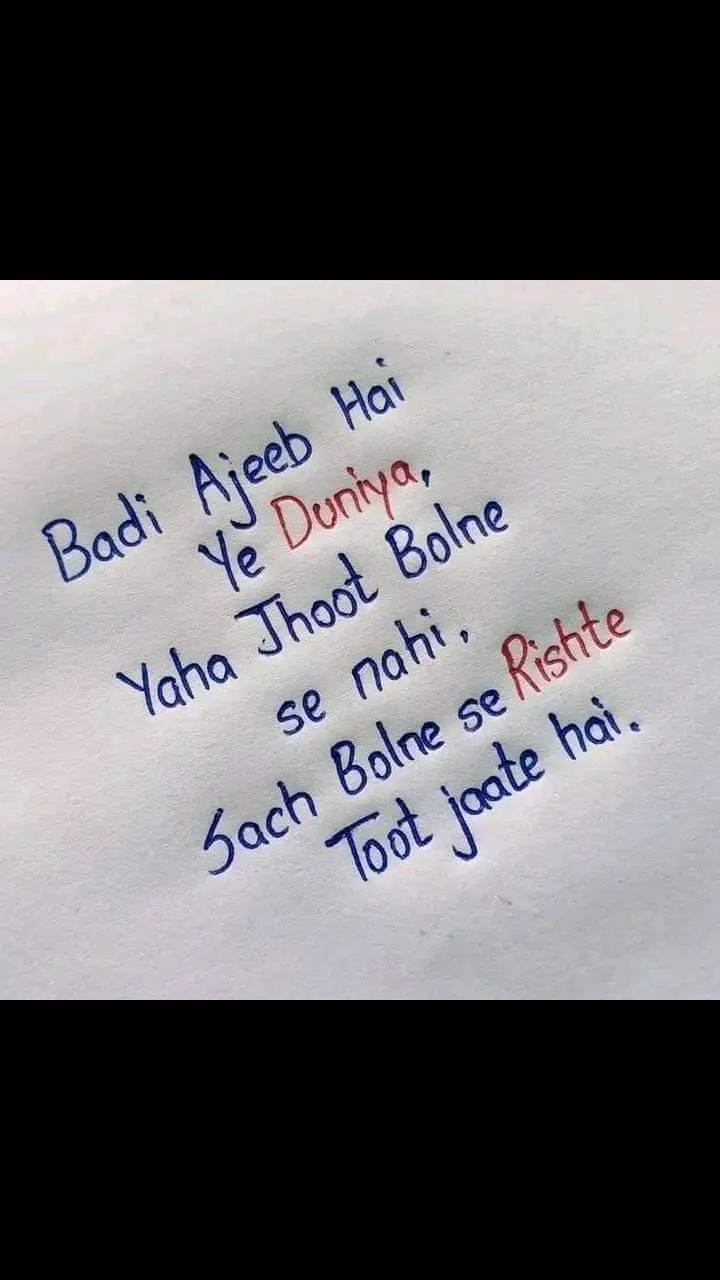 Badi Ajeeb Hai
Ye Duniya,
Yaha Jhoot Bolne
se nahi,
Sach Bolne se Rishte
Toot jaate hai.